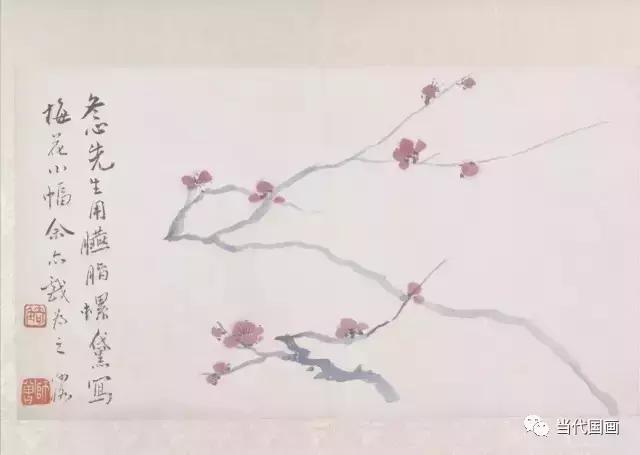 冬心先生用臙脂螺黛寫
梅花小幅余亦戲為之
師曾
当代国画